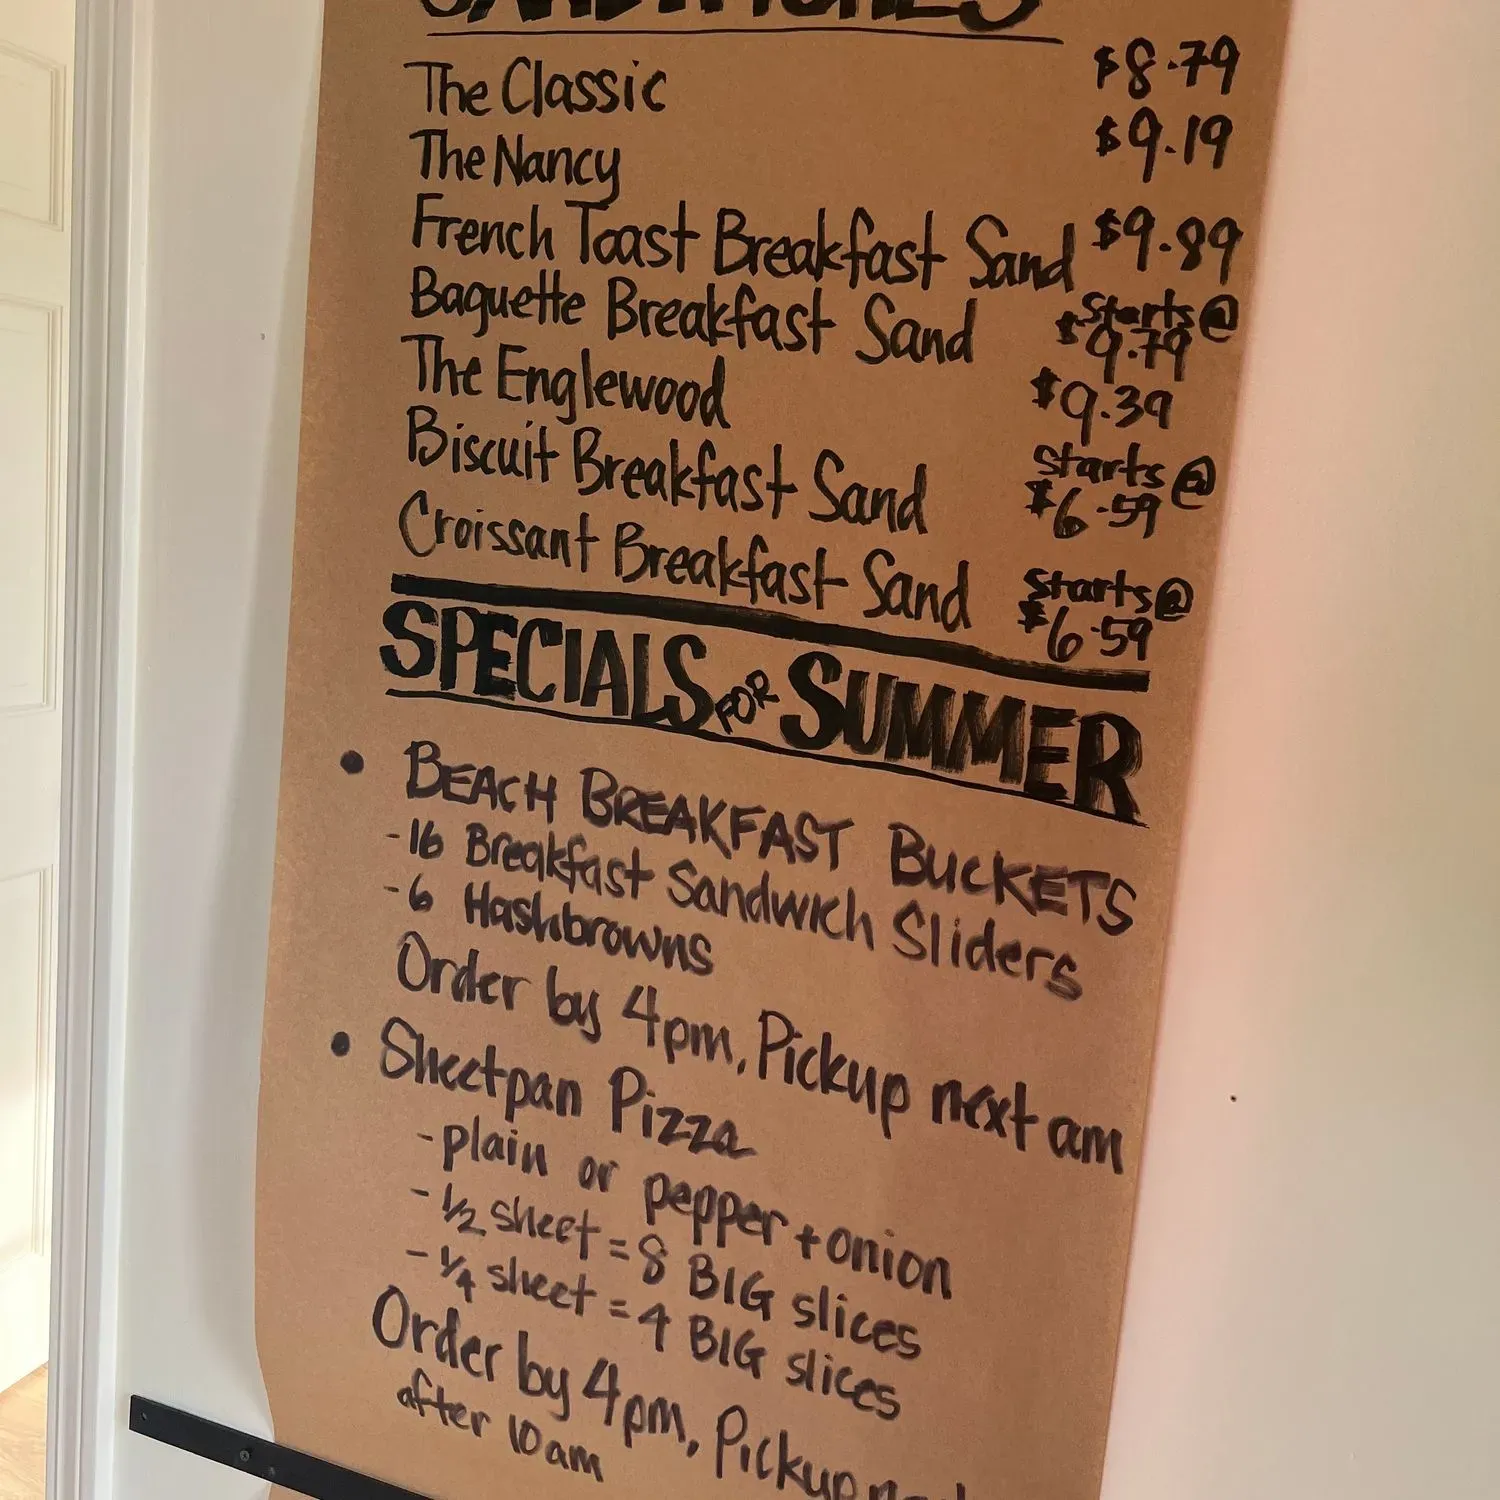 SANDWICHES
The Classic $8.79
The Nancy $9.19
French Toast Breakfast Sand $9.89
Baguette Breakfast Sand Starts @ $9.79
The Englewood $9.39
Biscuit Breakfast Sand Starts @ $6.59
Croissant Breakfast Sand Starts @ $6.59
SPECIALS FOR SUMMER
• BEACH BREAKFAST BUCKETS
- 16 Breakfast Sandwich Sliders
- 6 Hashbrowns
Order by 4pm, Pickup next am
• Sheetpan Pizza
- plain or pepper + onion
- 1/2 sheet = 8 BIG slices
- 1/4 sheet = 4 BIG slices
Order by 4pm, Pickup
after 10am